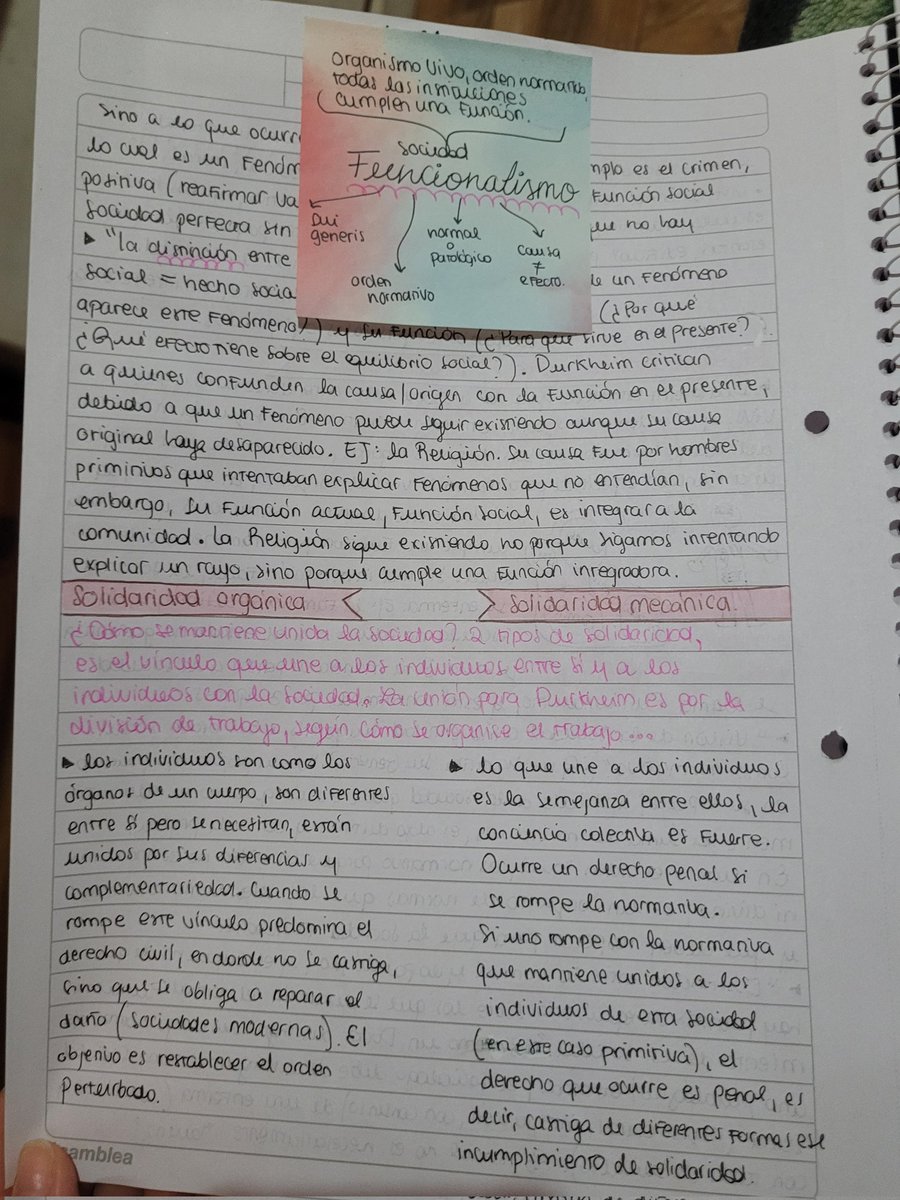 organismo vivo, orden normativo,
todas las instituciones
cumplen una función.
sociedad
Funcionalismo
Sui
generis
orden
normativo
normal
o
patológico
causa
≠
efecto.
sino a lo que ocurr
lo cual es un Fenóm mplo es el crimen,
positiva (reafirmar va Función social
sociedad perfecta sin que no hay
▸ "la distinción entre
social = hecho socia de un Fenómeno
aparece este Fenómeno?) y su Función (¿Para qué sirve en el presente? (¿Por qué
¿Qué efecto tiene sobre el equilibrio social?). Durkheim critican
a quienes confunden la causa/origen con la Función en el presente,
debido a que un Fenómeno puede seguir existiendo aunque su causa
original haya desaparecido. EJ: la Religión. Su causa Fue por hombres
primitivos que intentaban explicar Fenómenos que no entendían, sin
embargo, su Función actual, Función social, es integrar a la
comunidad. La Religión sigue existiendo no porque sigamos intentando
explicar un rayo, sino porque cumple una Función integradora.
Solidaridad orgánica Solidaridad mecánica.
¿Cómo se mantiene unida la sociedad? 2 tipos de solidaridad,
es el vínculo que une a los individuos entre sí y a los
individuos con la sociedad. La unión para Durkheim es por la
división de trabajo, según cómo se organice el trabajo...
▸ los individuos son como los
órganos de un cuerpo, son diferentes
entre sí pero se necesitan, están
unidos por sus diferencias y
complementariedad. Cuando se
rompe este vínculo predomina el
derecho civil, en donde no se castiga,
sino que se obliga a reparar el
daño (sociedades modernas). El
objetivo es restablecer el orden
perturbado.
▸ lo que une a los individuos
es la semejanza entre ellos, la
conciencia colectiva es Fuerte.
Ocurre un derecho penal si
se rompe la normativa.
Si uno rompe con la normativa
que mantiene unidos a los
individuos de esta sociedad
(en este caso primitiva), el
derecho que ocurre es penal, es
decir, castiga de diferentes Formas ese
incumplimiento de solidaridad.
amblea